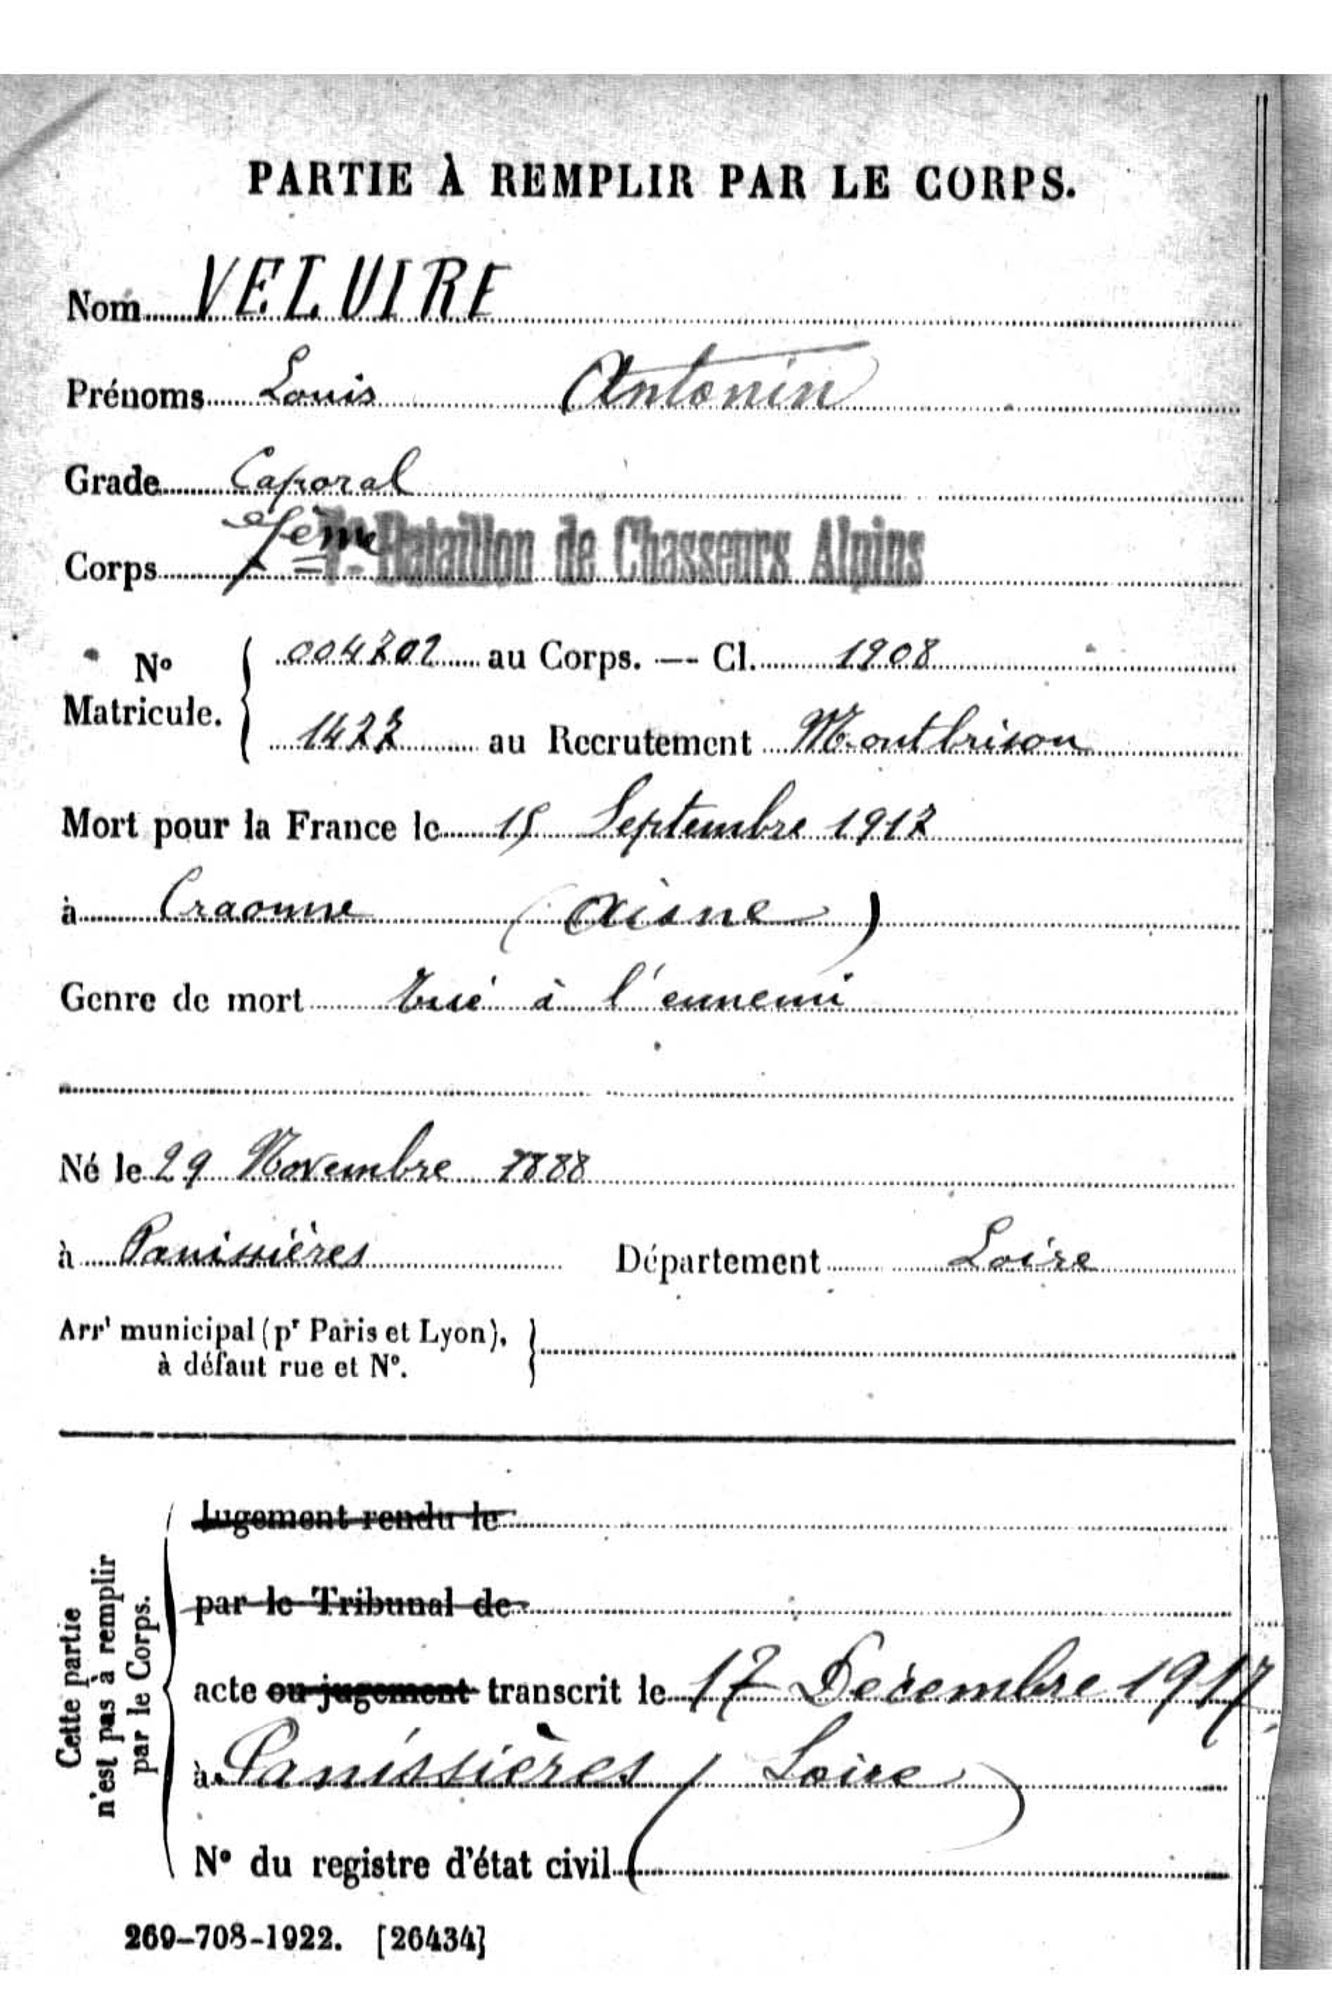 PARTIE À REMPLIR PAR LE CORPS.
Nom VELUIRE
Prénoms Louis Antonin
Grade Caporal
Corps 7ème Bataillon de Chasseurs Alpins
N° Matricule. 004202 au Corps. — Cl. 1908
1427 au Recrutement Montbrison
Mort pour la France le 15 Septembre 1917
à Craonne (Aisne)
Genre de mort tué à l'ennemi
Né le 29 Novembre 1888
à Panissières Département Loire
Arrt municipal (pr Paris et Lyon),
à défaut rue et N°.
Cette partie
n'est pas à remplir
par le Corps.
Jugement rendu le
par le Tribunal de
acte ou jugement transcrit le 17 Décembre 1917
à Panissières (Loire)
N° du registre d'état civil
269-708-1922. [26434]